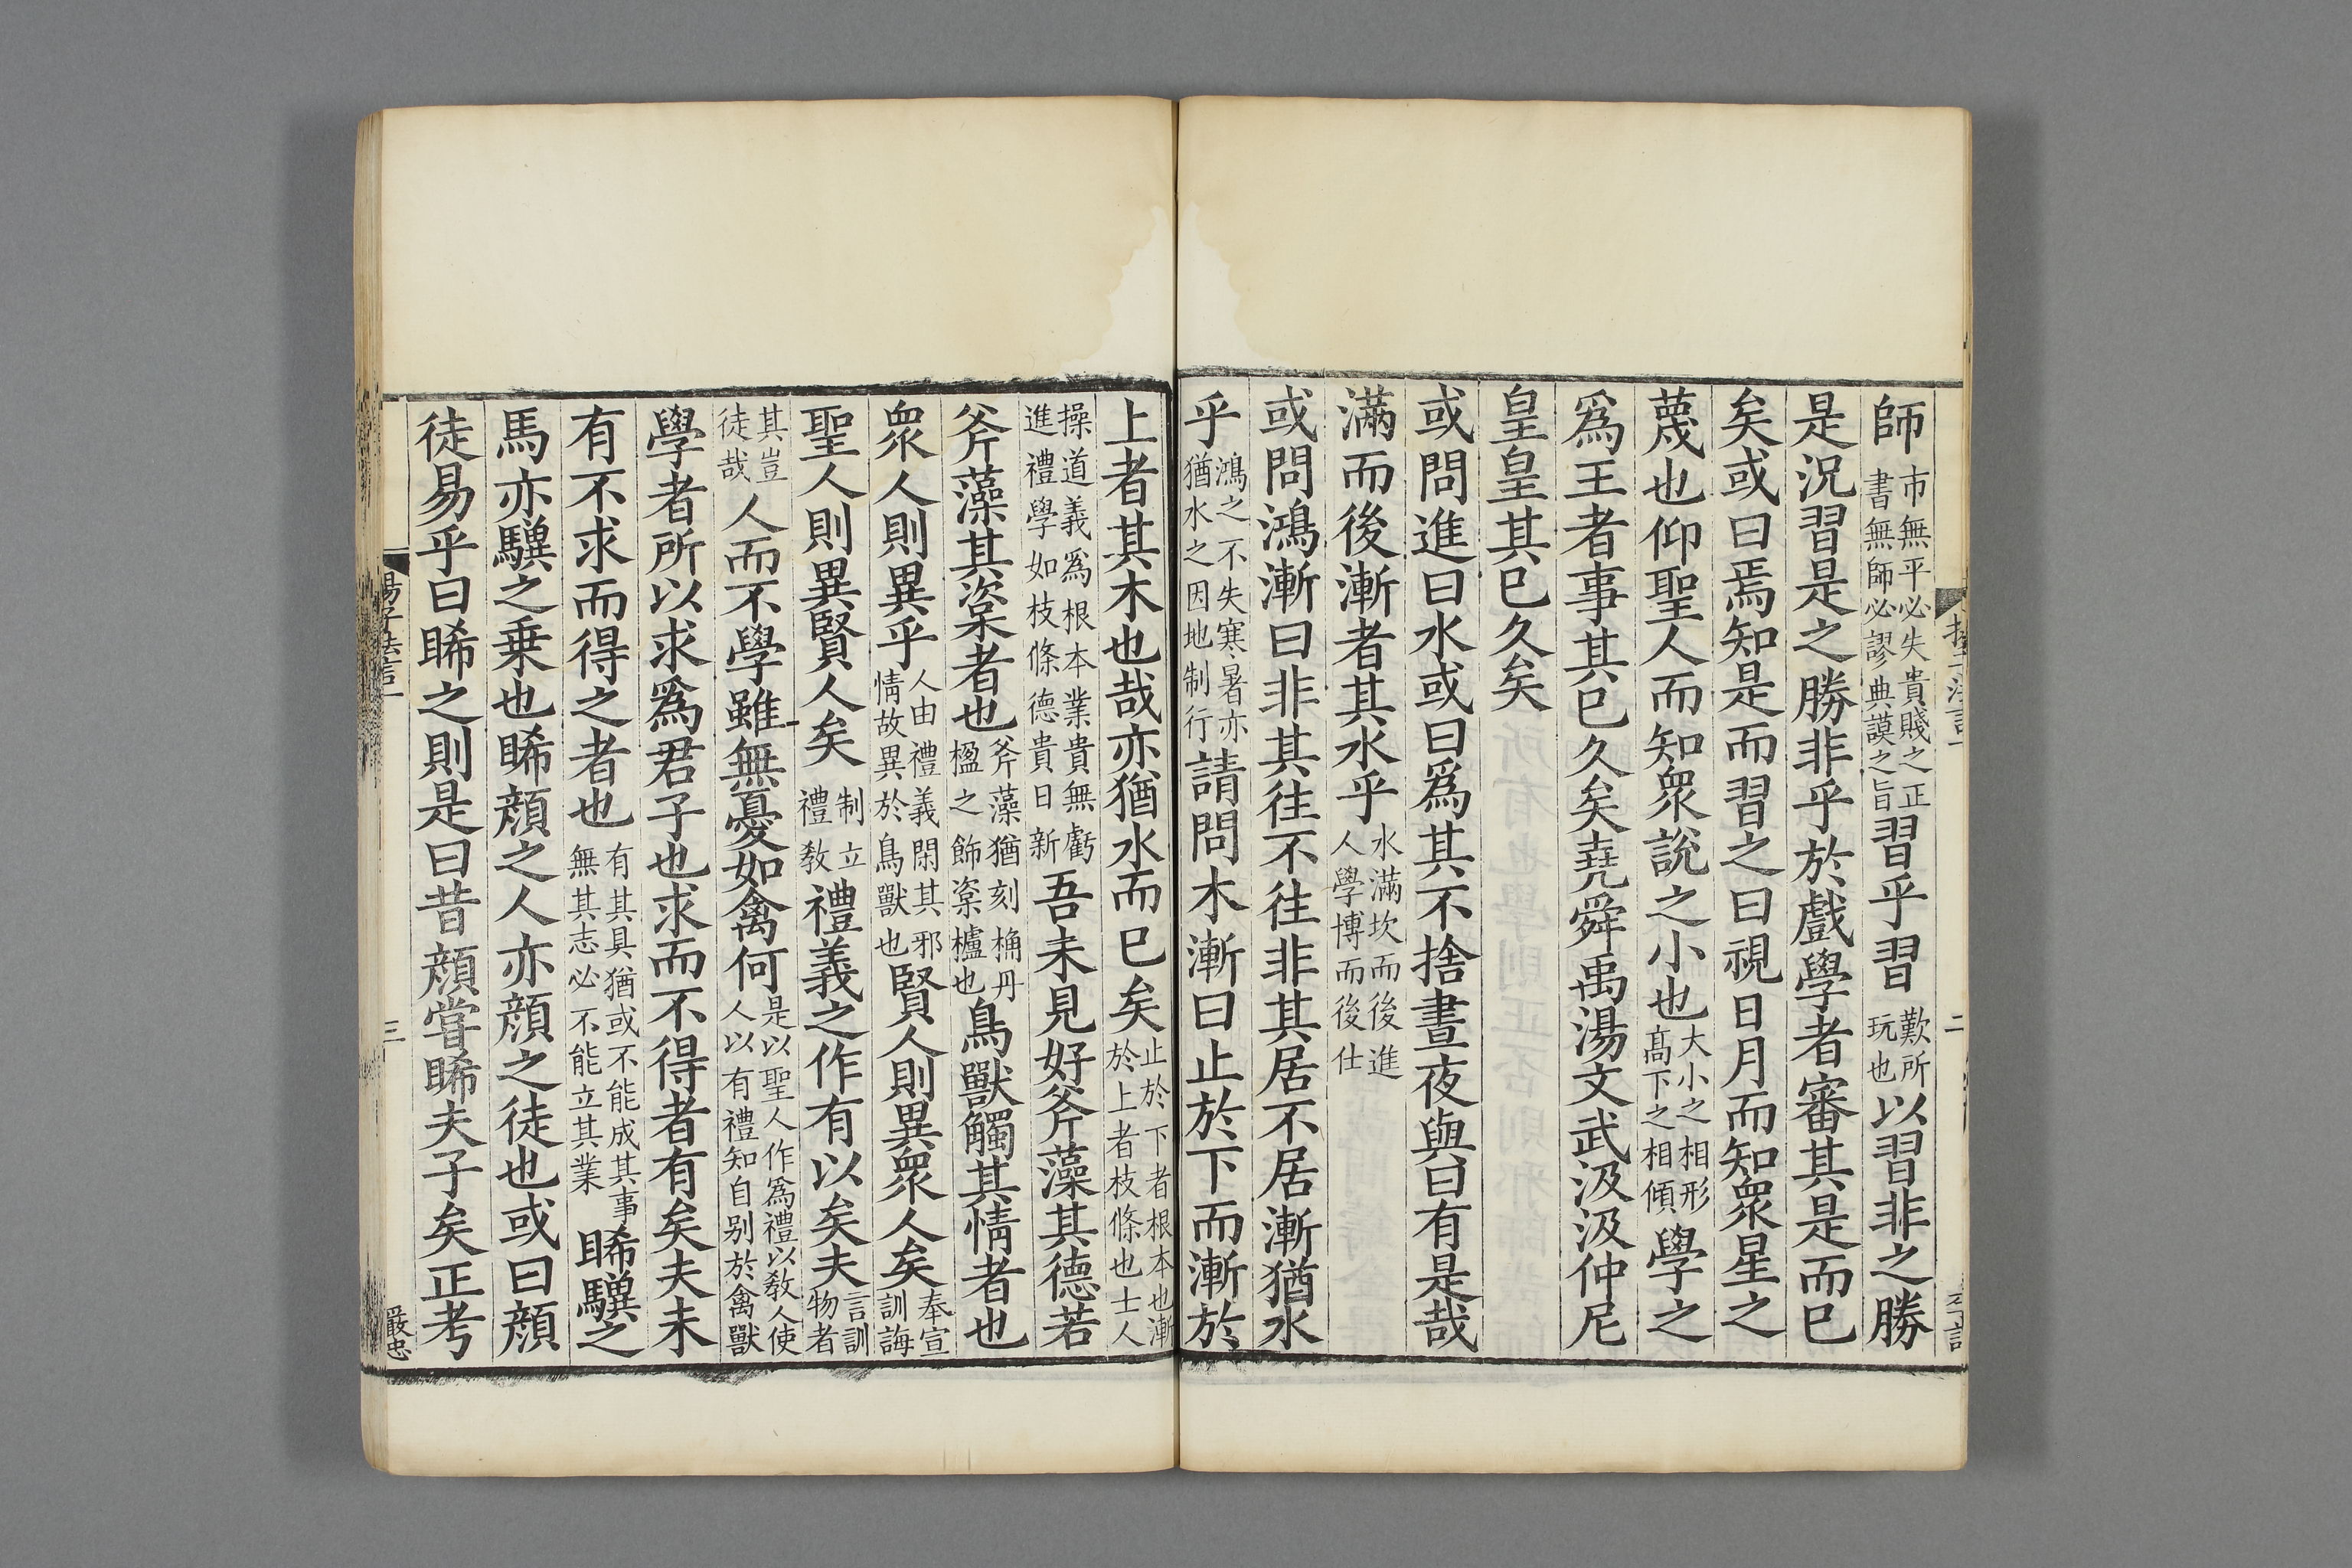 師市無平必失貴賤之正書無師必謬典謨之旨習乎習歎所玩也以習非之勝
是況習是之勝非乎於戲學者審其是而已
矣或曰焉知是而習之曰視日月而知衆星之
蔑也仰聖人而知衆說之小也大小之相形髙下之相傾學之
爲王者事其已久矣堯舜禹湯文武汲汲仲尼
皇皇其已久矣
或問進曰水或曰爲其不捨晝夜與曰有是哉
滿而後漸者其水乎水滿坎而後進人學博而後仕
或問鴻漸曰非其往不往非其居不居漸猶水
乎鴻之不失寒暑亦猶水之因地制行請問木漸曰止於下而漸於
上者其木也哉亦猶水而已矣止於下者根本也漸於上者枝條也士人
操道義爲根本業貴無虧進禮學如枝條德貴日新吾未見好斧藻其德若
斧藻其楶者也斧藻猶刻桷丹楹之飾楶櫨也鳥獸觸其情者也
衆人則異乎人由禮義閑其邪情故異於鳥獸也賢人則異衆人矣奉宣訓誨
聖人則異賢人矣制立禮敎禮義之作有以矣夫言訓物者
其豈徒哉人而不學雖無憂如禽何是以聖人作爲禮以敎人使人以有禮知自别於禽獸
學者所以求爲君子也求而不得者有矣夫未
有不求而得之者也有其具猶或不能成其事無其志必不能立其業睎驥之
馬亦驥之乗也睎顏之人亦顏之徒也或曰顏
徒易乎曰睎之則是曰昔顏嘗睎夫子矣正考
揚子法言一
三
嚴忠
二